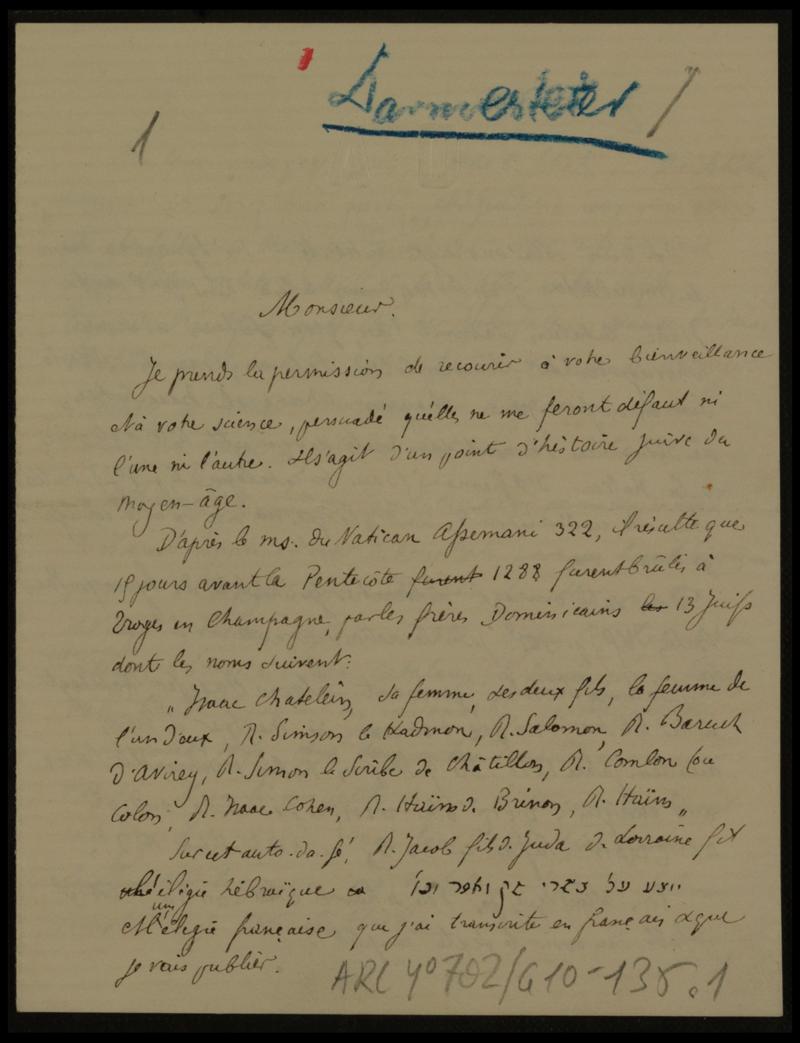 Darmesteter
1
Monsieur.
Je prends la permission de recourir à votre bienveillance
et à votre science, persuadé qu'elles ne me feront défaut ni
l'une ni l'autre. Il s'agit d'un point d'histoire juive du
moyen-âge.
D'après le ms. du Vatican Assemani 322, il résulte que
15 jours avant la Pentecôte furent 1288 furent brûlés à
Troyes en Champagne, par les frères Dominicains les 13 Juifs
dont les noms suivent:
„ Isaac Chatelein, sa femme, ses deux fils, la femme de
l'un d'eux, R. Simson le Kadmon, R. Salomon, R. Baruch
d'Avirey, R. Simon le Scribe de Châtillon, R. Comlon (ou
Colon, R. Isaac Cohen, R. Haïm de Brinon, R. Haïm „
Sur cet auto-da-fé, R. Jacob fils de Juda de Lorraine fit
élégie hébraïque
une
et l'élégie française que j'ai transcrite en français et que
je vais publier.
ARC 4° 702/G10-135.1